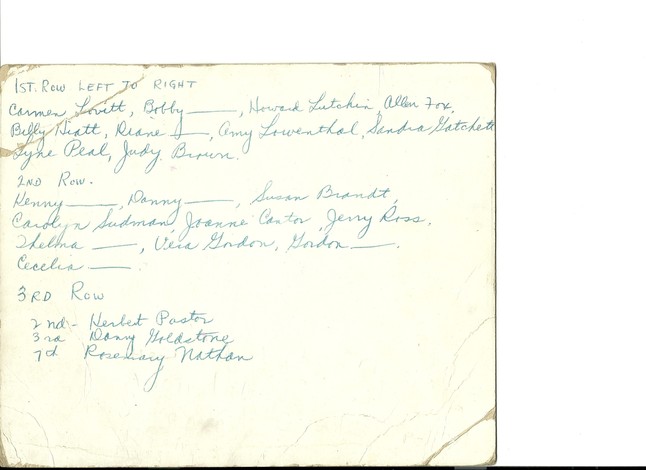 1ST. ROW LEFT TO RIGHT
Carmen Lovitt, Bobby ——, Howard Lutchin, Allen Fox,
Billy Hiatt, Diane ——, Amy Lowenthal, Sandra Gatchett
Lyne Peal, Judy Brown.
2ND ROW.
Kenny ——, Danny ——, Susan Brandt,
Carolyn Sudman, Joanne Cantor, Jerry Ross,
Thelma ——, Vera Gordon, Gordon ——.
Cecelia ——.
3RD ROW
2nd - Herbert Pastor
3rd Danny Goldstone
7th Rosemary Nathan